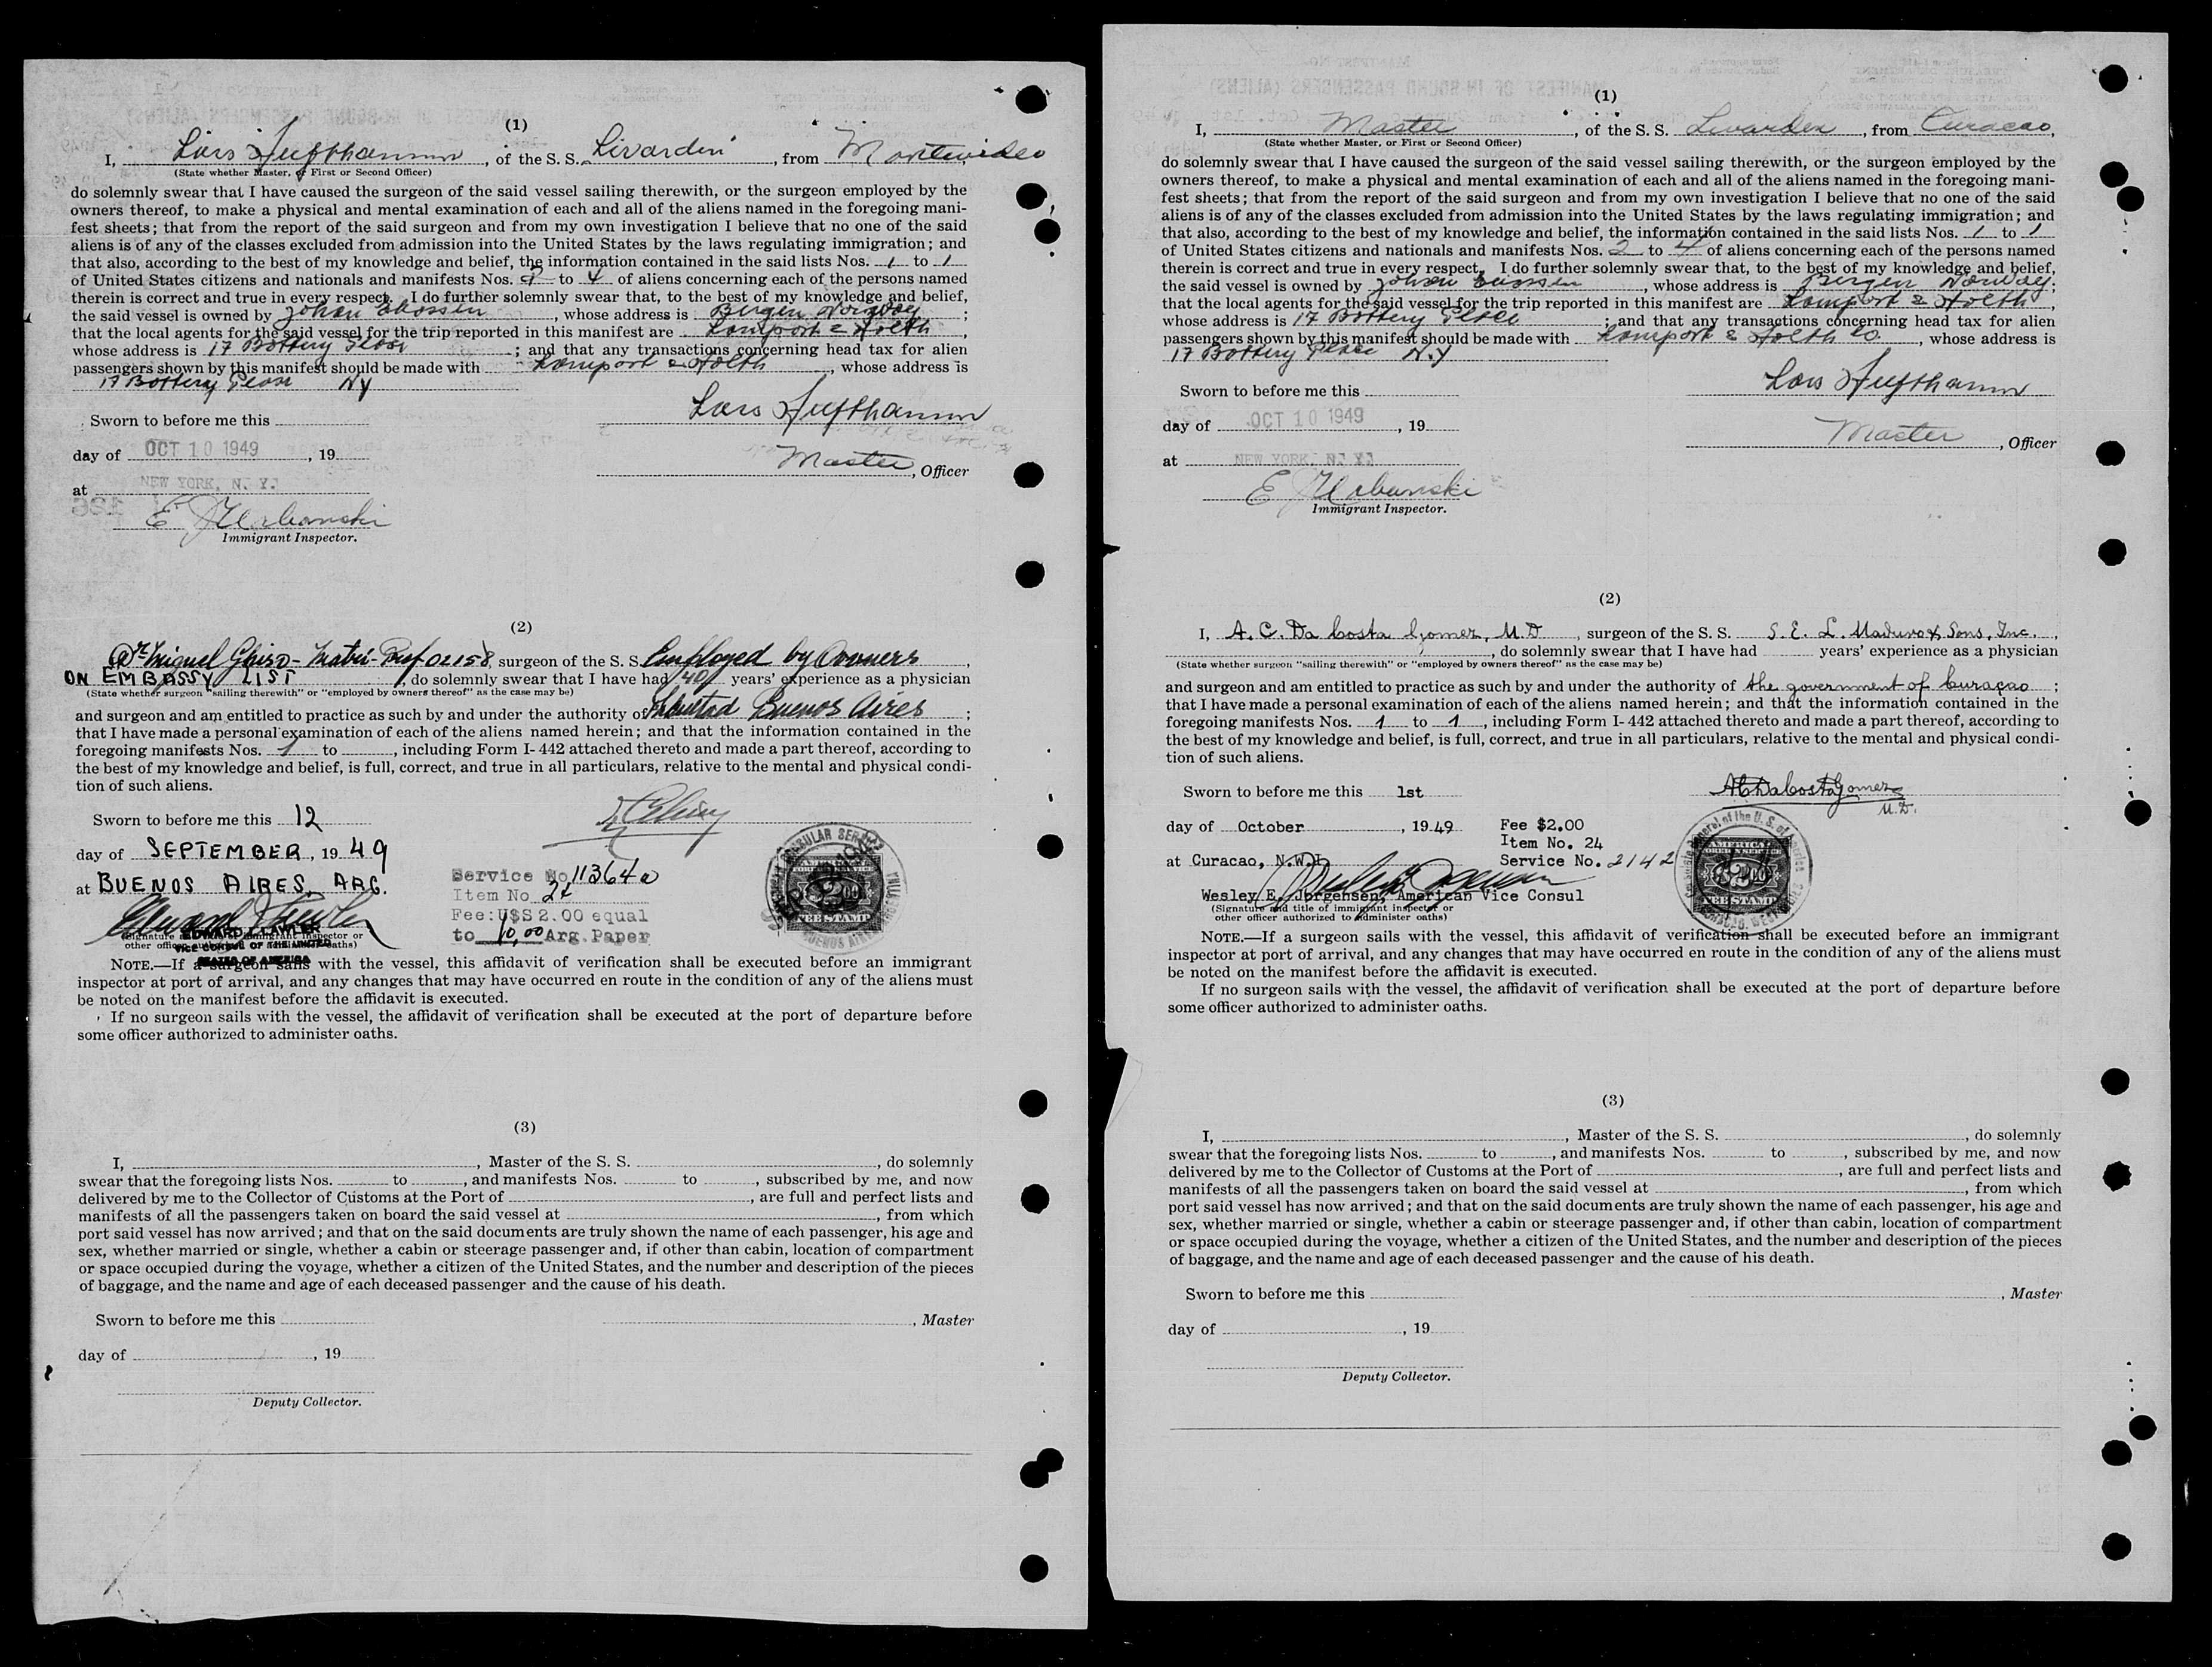 (1)
I, Lars Hufthammer, of the S. S. Livarden, from Montevideo
(State whether Master, or First or Second Officer)
do solemnly swear that I have caused the surgeon of the said vessel sailing therewith, or the surgeon employed by the
owners thereof, to make a physical and mental examination of each and all of the aliens named in the foregoing mani-
fest sheets; that from the report of the said surgeon and from my own investigation I believe that no one of the said
aliens is of any of the classes excluded from admission into the United States by the laws regulating immigration; and
that also, according to the best of my knowledge and belief, the information contained in the said lists Nos. 1 to 1
of United States citizens and nationals and manifests Nos. 2 to 4 of aliens concerning each of the persons named
therein is correct and true in every respect. I do further solemnly swear that, to the best of my knowledge and belief,
the said vessel is owned by Johan, whose address is Bergen Norway;
that the local agents for the said vessel for the trip reported in this manifest are Lamport & Holth,
whose address is 17 Battery Place; and that any transactions concerning head tax for alien
passengers shown by this manifest should be made with Lamport & Holth, whose address is
17 Battery Place NY
Sworn to before me this
Lars Hufthammer
day of OCT 10 1949, 19
Master, Officer
at NEW YORK, N. Y.
E J Urbanski
Immigrant Inspector.
(2)
Dr. Miguel Ghiso - Matri - Prof 02158, surgeon of the S. S. Employed by Owners,
ON EMBASSY LIST, do solemnly swear that I have had 40 years' experience as a physician
(State whether surgeon "sailing therewith" or "employed by owners thereof" as the case may be)
and surgeon and am entitled to practice as such by and under the authority of Buenos Aires;
that I have made a personal examination of each of the aliens named herein; and that the information contained in the
foregoing manifests Nos. 1 to, including Form I-442 attached thereto and made a part thereof, according to
the best of my knowledge and belief, is full, correct, and true in all particulars, relative to the mental and physical condi-
tion of such aliens.
Sworn to before me this 12
day of SEPTEMBER, 1949
at BUENOS AIRES, ARG.
Service No 11364a
Item No 24
Fee: U$S 2.00 equal
to 10,00 Arg. Paper
EDWARD J. LAWLER
VICE CONSUL OF THE UNITED
STATES OF AMERICA
(Signature and title of immigrant inspector or
other officer authorized to administer oaths)
FEE STAMP
NOTE.—If a surgeon sails with the vessel, this affidavit of verification shall be executed before an immigrant
inspector at port of arrival, and any changes that may have occurred en route in the condition of any of the aliens must
be noted on the manifest before the affidavit is executed.
If no surgeon sails with the vessel, the affidavit of verification shall be executed at the port of departure before
some officer authorized to administer oaths.
(3)
I,, Master of the S. S., do solemnly
swear that the foregoing lists Nos. to, and manifests Nos. to, subscribed by me, and now
delivered by me to the Collector of Customs at the Port of, are full and perfect lists and
manifests of all the passengers taken on board the said vessel at, from which
port said vessel has now arrived; and that on the said documents are truly shown the name of each passenger, his age and
sex, whether married or single, whether a cabin or steerage passenger and, if other than cabin, location of compartment
or space occupied during the voyage, whether a citizen of the United States, and the number and description of the pieces
of baggage, and the name and age of each deceased passenger and the cause of his death.
Sworn to before me this
, Master
day of, 19
Deputy Collector.
(1)
I, Master, of the S. S. Livarden, from Curacao,
(State whether Master, or First or Second Officer)
do solemnly swear that I have caused the surgeon of the said vessel sailing therewith, or the surgeon employed by the
owners thereof, to make a physical and mental examination of each and all of the aliens named in the foregoing mani-
fest sheets; that from the report of the said surgeon and from my own investigation I believe that no one of the said
aliens is of any of the classes excluded from admission into the United States by the laws regulating immigration; and
that also, according to the best of my knowledge and belief, the information contained in the said lists Nos. 1 to 1
of United States citizens and nationals and manifests Nos. 2 to 4 of aliens concerning each of the persons named
therein is correct and true in every respect. I do further solemnly swear that, to the best of my knowledge and belief,
the said vessel is owned by Johan, whose address is Bergen Norway;
that the local agents for the said vessel for the trip reported in this manifest are Lamport & Holth,
whose address is 17 Battery Place; and that any transactions concerning head tax for alien
passengers shown by this manifest should be made with Lamport & Holth Co., whose address is
17 Battery Place N.Y
Sworn to before me this
Lars Hufthammer
day of OCT 10 1949, 19
Master, Officer
at NEW YORK, N. Y.
E J Urbanski
Immigrant Inspector.
(2)
I, A. C. Da Costa Gomez, M.D, surgeon of the S. S. S. E. L. Maduro & Sons, Inc.,
, do solemnly swear that I have had years' experience as a physician
(State whether surgeon "sailing therewith" or "employed by owners thereof" as the case may be)
and surgeon and am entitled to practice as such by and under the authority of the government of Curaçao;
that I have made a personal examination of each of the aliens named herein; and that the information contained in the
foregoing manifests Nos. 1 to 1, including Form I-442 attached thereto and made a part thereof, according to
the best of my knowledge and belief, is full, correct, and true in all particulars, relative to the mental and physical condi-
tion of such aliens.
Sworn to before me this 1st
ACDaCostaGomez
M.D.
day of October, 1949
Fee $2.00
Item No. 24
at Curacao, N.W.I.
Service No. 2142
Wesley E. Jorgensen, American Vice Consul
(Signature and title of immigrant inspector or
other officer authorized to administer oaths)
AMERICAN
FOREIGN SERVICE
$2.00
FEE STAMP
NOTE.—If a surgeon sails with the vessel, this affidavit of verification shall be executed before an immigrant
inspector at port of arrival, and any changes that may have occurred en route in the condition of any of the aliens must
be noted on the manifest before the affidavit is executed.
If no surgeon sails with the vessel, the affidavit of verification shall be executed at the port of departure before
some officer authorized to administer oaths.
(3)
I,, Master of the S. S., do solemnly
swear that the foregoing lists Nos. to, and manifests Nos. to, subscribed by me, and now
delivered by me to the Collector of Customs at the Port of, are full and perfect lists and
manifests of all the passengers taken on board the said vessel at, from which
port said vessel has now arrived; and that on the said documents are truly shown the name of each passenger, his age and
sex, whether married or single, whether a cabin or steerage passenger and, if other than cabin, location of compartment
or space occupied during the voyage, whether a citizen of the United States, and the number and description of the pieces
of baggage, and the name and age of each deceased passenger and the cause of his death.
Sworn to before me this
, Master
day of, 19
Deputy Collector.